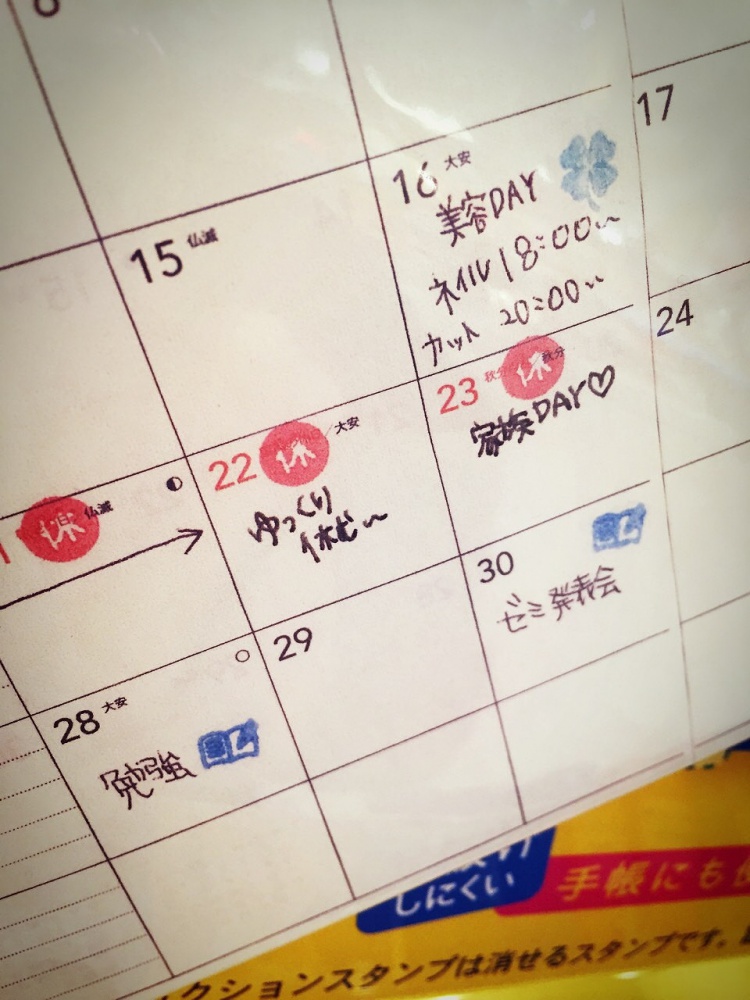 16 大安
17
美容DAY
ネイル 18:00〜
カット 20:00〜
15 仏滅
24
23 秋分 休
家族DAY♡
22 休 大安
ゆっくり
休む〜
休 仏滅
30
ゼミ発表会
29
28 大安
勉強
しにくい
手帳にも
クションスタンプは消せるスタンプです。